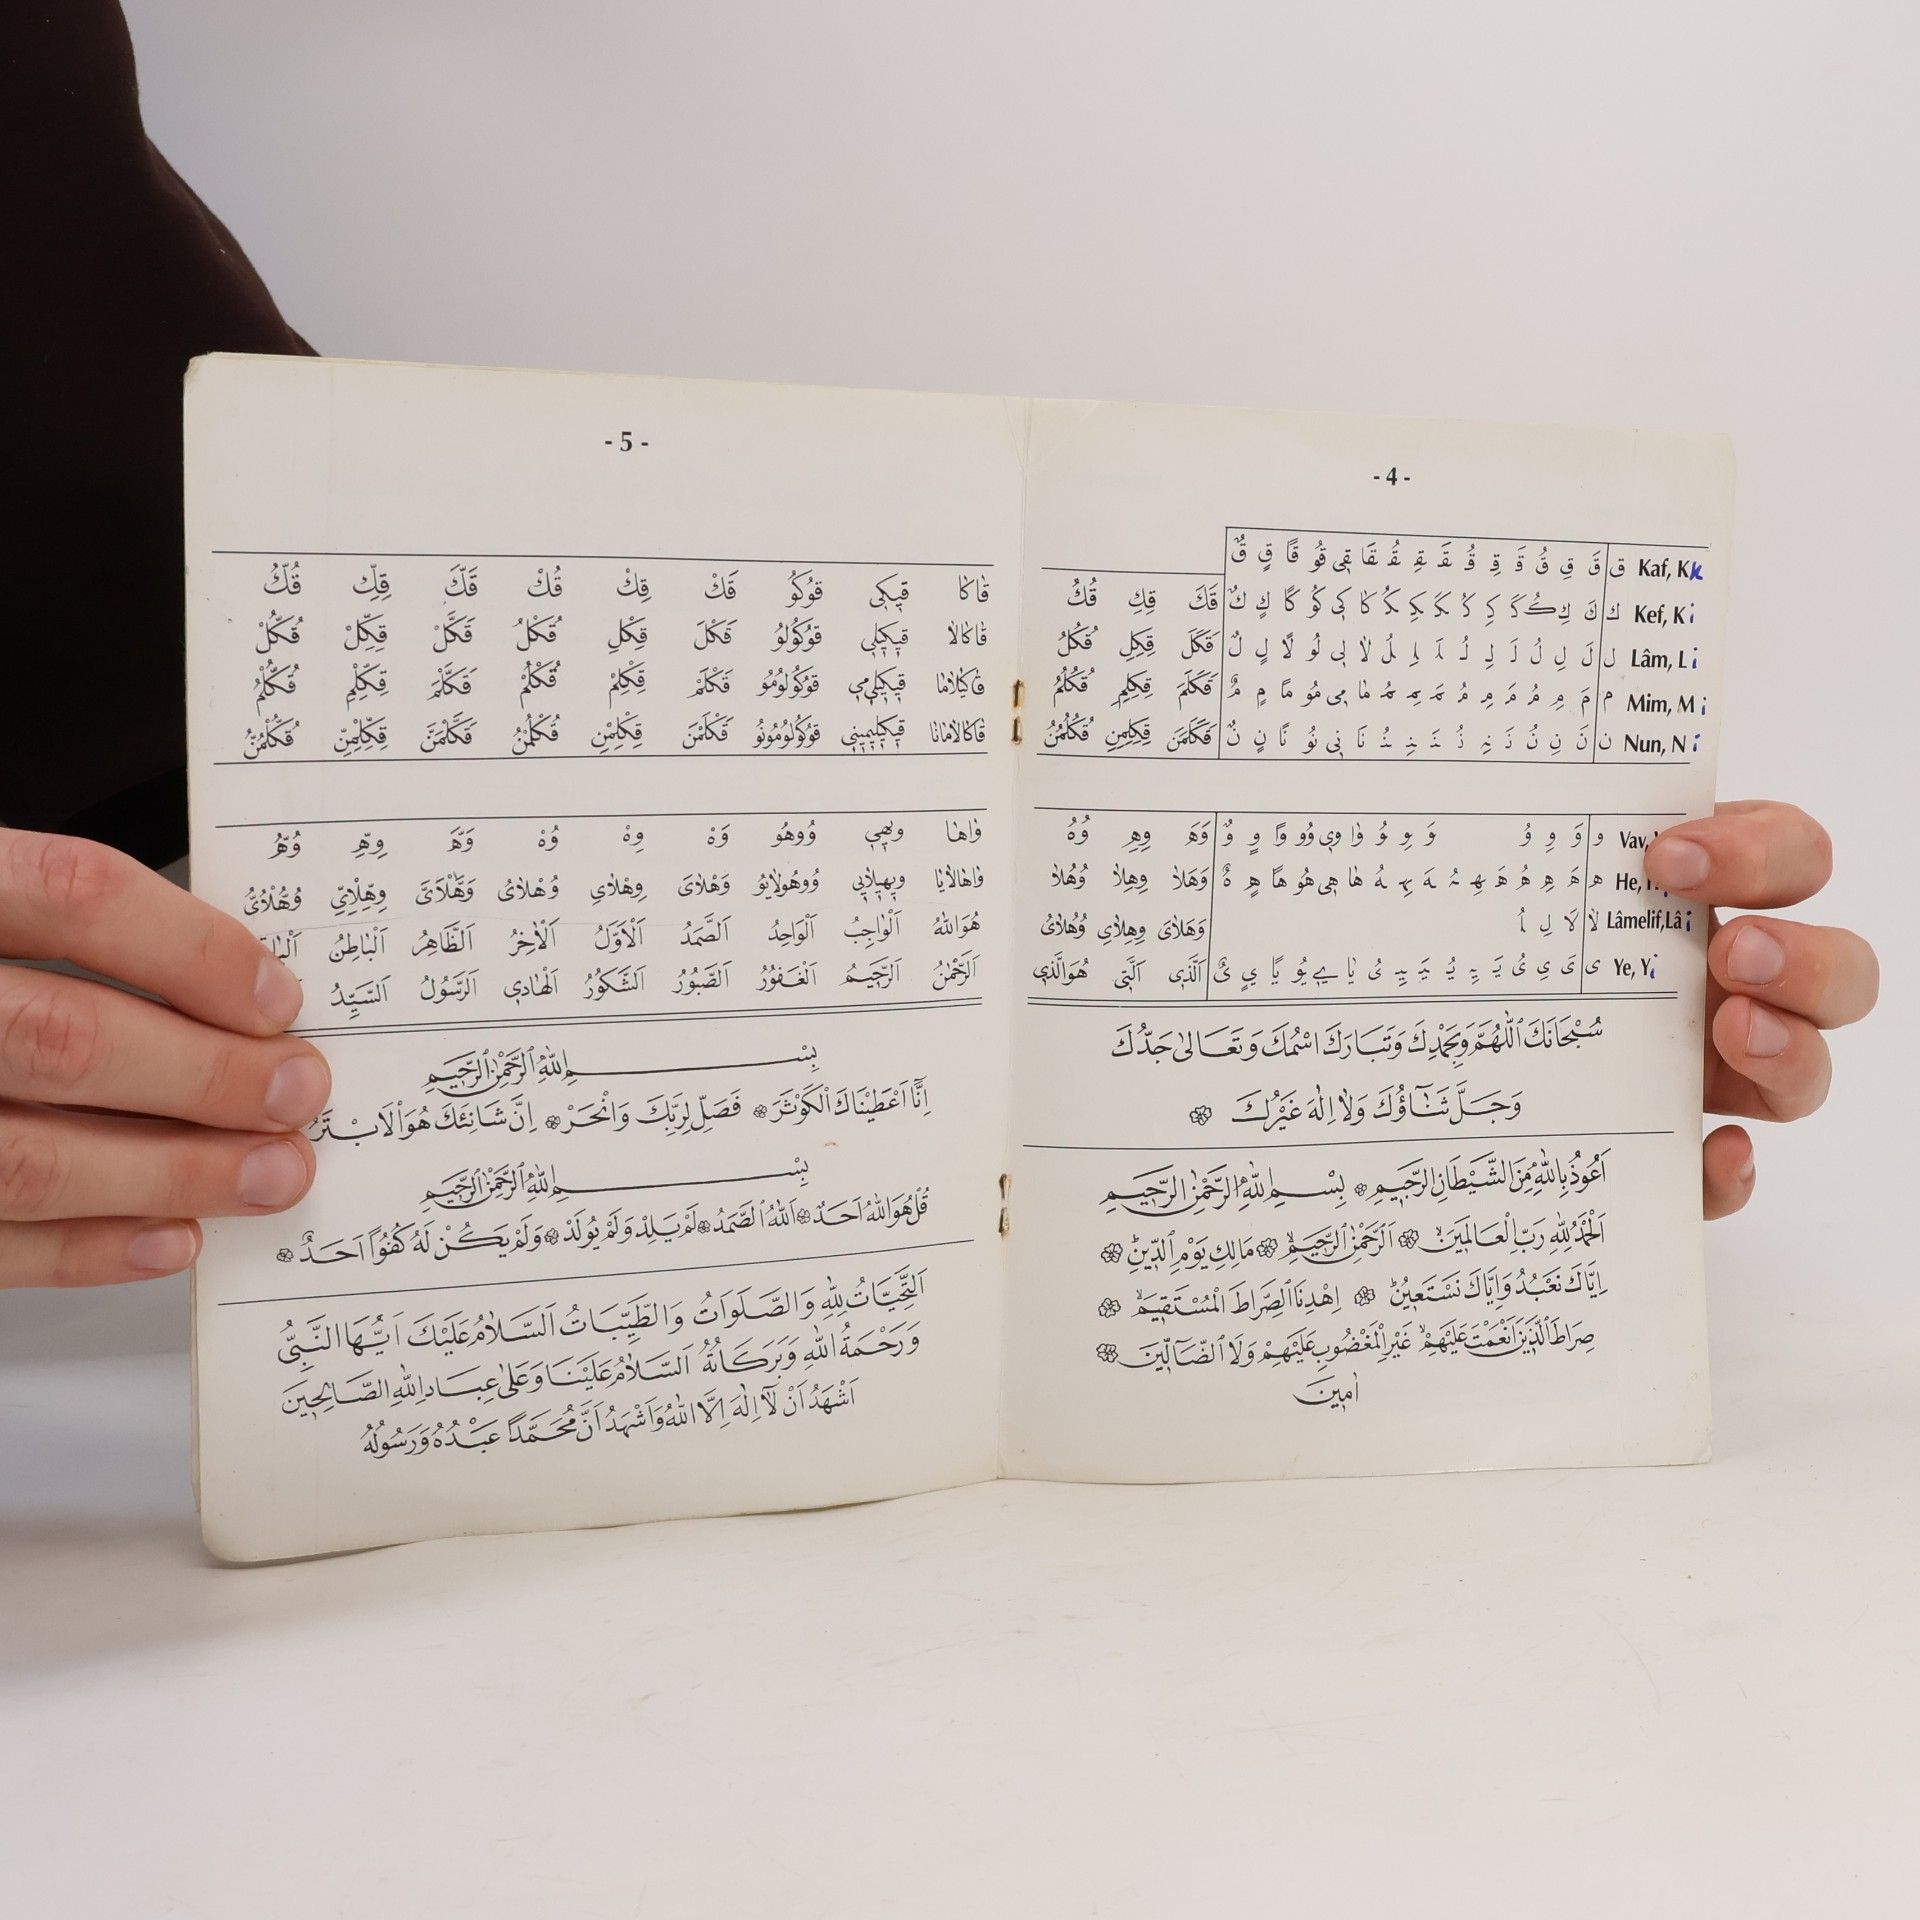 - 4 -
ق قَ قِ قُ قَ قِ قُ قَ قِ قُ قَا قِى قُو قًا قٍ قٌ Kaf, K
ك كَ كِ كُ كَ كِ كُ كَ كِ كُ كَا كِى كُو كًا كٍ كٌ Kef, K i
قَكَ قِكِ قُكُ
ل لَ لِ لُ لَ لِ لُ لَ لِ لُ لَا لِى لُو لًا لٍ لٌ Lâm, L i
قَكَلَ قِكِلِ قُكُلُ
م مَ مِ مُ مَ مِ مُ مَ مِ مُ مَا مِى مُو مًا مٍ مٌ Mim, M i
قَكَلَمَ قِكِلِمِ قُكُلُمُ
ن نَ نِ نُ نَ نِ نُ نَ نِ نُ نَا نِى نُو نًا نٍ نٌ Nun, N i
قَكَلَمَنَ قِكِلِمِنِ قُكُلُمُنُ
و وَ وِ وُ وَ وِ وُ وَا وِى وُو وًا وٍ وٌ Vav,
وَهَ وِهِ وُهُ
ه هَ هِ هُ هَ هِ هُ هَ هِ هُ هَا هِى هُو هًا هٍ هٌ He,
وَهَلَا وِهِلَا وُهُلَا
لا لَا لِ لُ Lâmelif,Lâ i
وَهَلَاىَ وِهِلَاىِ وُهُلَاىُ
ى ىَ ىِ ىُ يَ يِ يُ يَ يِ ىُ يَا يِى يُو يًا يٍ ىٌ Ye, Y i
اَلَّذِى اَلَّتِى هُوَالَّذِى
سُبْحَانَكَ اللّٰهُمَّ وَبِحَمْدِكَ وَتَبَارَكَ اسْمُكَ وَتَعَالٰى جَدُّكَ
وَجَلَّ ثَنَٓاؤُكَ وَلَا اِلٰهَ غَيْرُكَ ۞
اَعُوذُ بِاللّٰهِ مِنَ الشَّيْطَانِ الرَّجِيمِ ۞ بِسْمِ اللّٰهِ الرَّحْمٰنِ الرَّحِيمِ
اَلْحَمْدُ لِلّٰهِ رَبِّ الْعَالَمِينَ ۞ اَلرَّحْمٰنِ الرَّحِيمِ ۞ مَالِكِ يَوْمِ الدِّينِ ۞
اِيَّاكَ نَعْبُدُ وَاِيَّاكَ نَسْتَعِينُ ۞ اِهْدِنَا الصِّرَاطَ الْمُسْتَقِيمَ ۞
صِرَاطَ الَّذِينَ اَنْعَمْتَ عَلَيْهِمْ غَيْرِ الْمَغْضُوبِ عَلَيْهِمْ وَلَا الضَّٓالِّينَ ۞
اٰمِينَ
- 5 -
قَاكَا قِيكِى قُوكُو قَكْ قِكْ قُكْ قَكَّ قِكِّ قُكُّ
قَاكَالَا قِيكِيلِى قُوكُولُو قَكْلَ قِكْلِ قُكْلُ قَكَّلْ قِكِّلْ قُكُّلْ
قَاكَالَامَا قِيكِيلِيمِى قُوكُولُومُو قَكْلَمْ قِكْلِمْ قُكْلُمْ قَكَّلْمَ قِكِّلْمِ قُكُّلْمُ
قَاكَالَامَانَا قِيكِيلِيمِينِى قُوكُولُومُونُو قَكْلَمْنَ قِكْلِمْنِ قُكْلُمْنُ قَكَّلْمَنَّ قِكِّلِمِنِّ قُكُّلْمُنُّ
وَاهَا وِيهِى وُوهُو وَهْ وِهْ وُهْ وَهَّ وِهِّ وُهُّ
وَاهَالَايَا وِيهِيلَايِى وُوهُولَايُو وَهْلَاىَ وِهْلَاىِ وُهْلَاىُ وَهَّلْاَىَّ وِهِّلْاِىِّ وُهُّلْاُىُّ
هُوَاللّٰهُ اَلْوَاجِبُ اَلْوَاحِدُ اَلصَّمَدُ اَلْاَوَّلُ اَلْاٰخِرُ اَلظَّاهِرُ اَلْبَاطِنُ
اَلرَّحْمٰنُ اَلرَّحِيمُ اَلْغَفُورُ اَلصَّبُورُ اَلشَّكُورُ اَلْهَادِى اَلرَّسُولُ اَلسَّيِّدُ
بِسْمِ اللّٰهِ الرَّحْمٰنِ الرَّحِيمِ
اِنَّٓا اَعْطَيْنَاكَ الْكَوْثَرَ ۞ فَصَلِّ لِرَبِّكَ وَانْحَرْ ۞ اِنَّ شَانِئَكَ هُوَ الْاَبْتَرُ
بِسْمِ اللّٰهِ الرَّحْمٰنِ الرَّحِيمِ
قُلْ هُوَ اللّٰهُ اَحَدٌ ۞ اَللّٰهُ الصَّمَدُ ۞ لَمْ يَلِدْ وَلَمْ يُولَدْ ۞ وَلَمْ يَكُنْ لَهُ كُفُوًا اَحَدٌ ۞
اَلتَّحِيَّاتُ لِلّٰهِ وَالصَّلَوَاتُ وَالطَّيِّبَاتُ اَلسَّلَامُ عَلَيْكَ اَيُّهَا النَّبِىُّ
وَرَحْمَةُ اللّٰهِ وَبَرَكَاتُهُ اَلسَّلَامُ عَلَيْنَا وَعَلٰى عِبَادِ اللّٰهِ الصَّالِحِينَ
اَشْهَدُ اَنْ لَٓا اِلٰهَ اِلَّا اللّٰهُ وَاَشْهَدُ اَنَّ مُحَمَّدًا عَبْدُهُ وَرَسُولُهُ